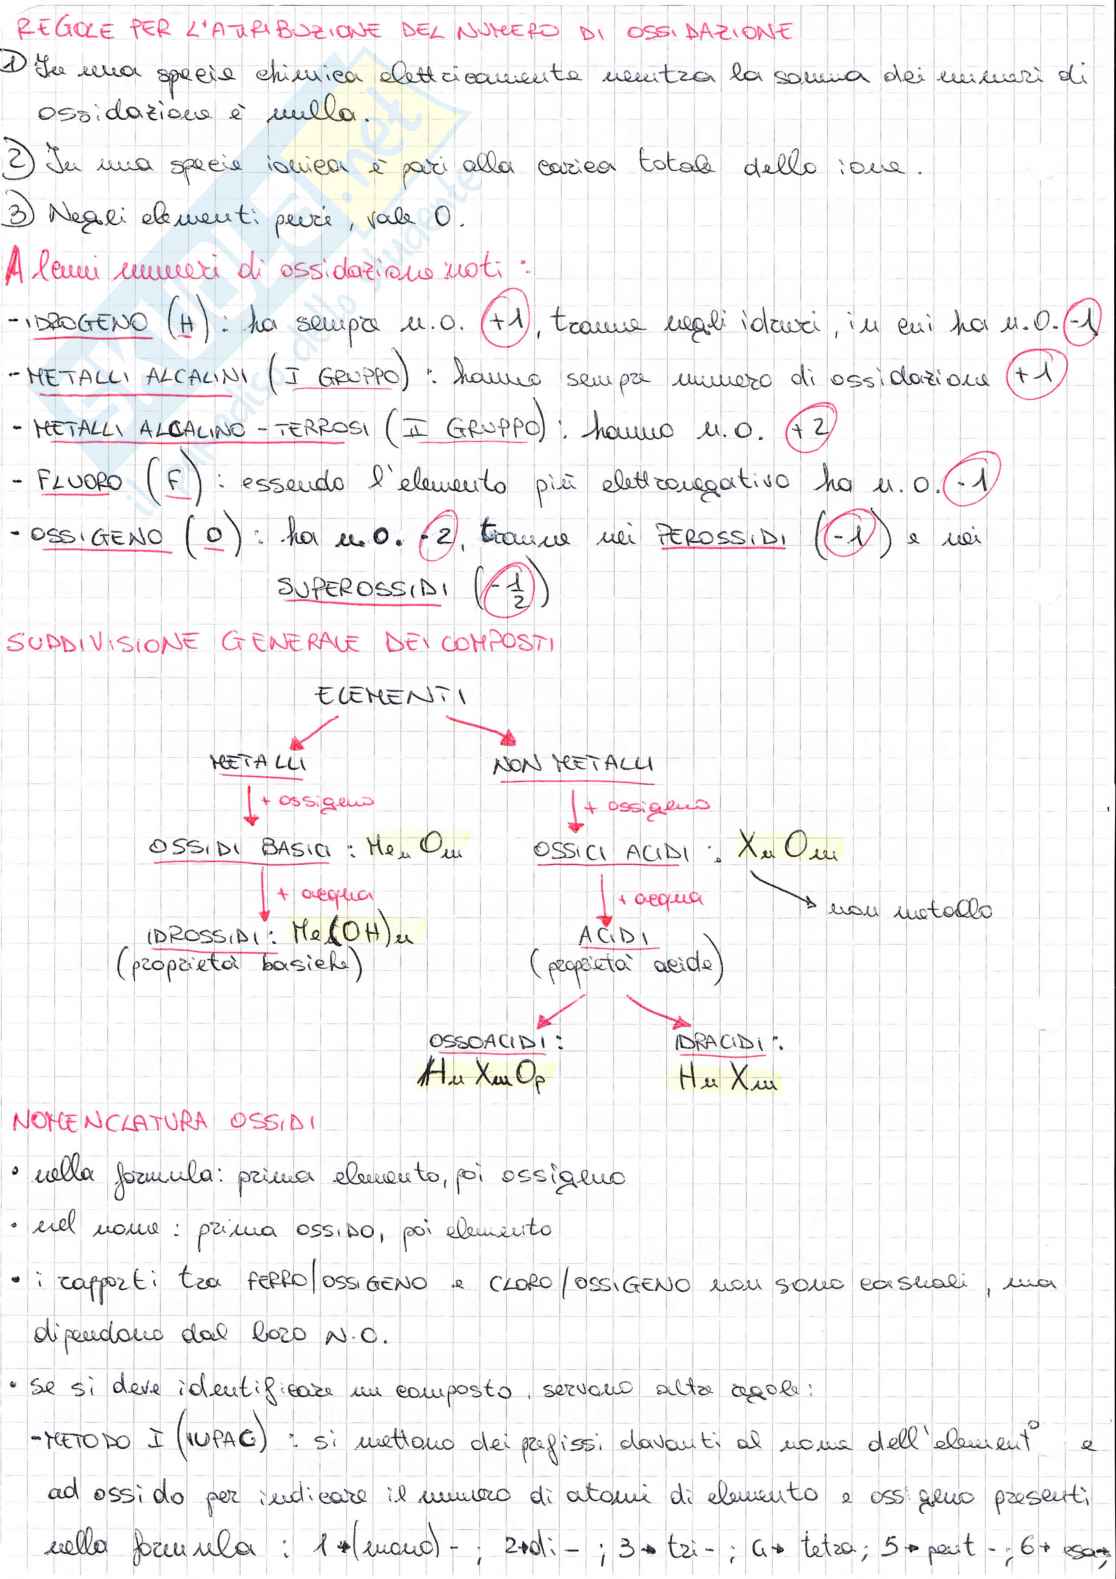 REGOLE PER L'ATTRIBUZIONE DEL NUMERO DI OSSIDAZIONE
1) In una specie chimica elettricamente neutra la somma dei numeri di
ossidazione è nulla.
2) In una specie ionica è pari alla carica totale dello ione.
3) Negli elementi puri, vale 0.
Alcuni numeri di ossidazione noti:
- IDROGENO (H): ha sempre n.o. +1, tranne negli idruri, in cui ha n.o. -1
- METALLI ALCALINI (I GRUPPO): hanno sempre numero di ossidazione +1
- METALLI ALCALINO-TERROSI (II GRUPPO): hanno n.o. +2
- FLUORO (F): essendo l'elemento più elettronegativo ha n.o. -1
- OSSIGENO (O): ha n.o. -2, tranne nei PEROSSIDI (-1) e nei
SUPEROSSIDI (-1/2)
SUDDIVISIONE GENERALE DEI COMPOSTI
ELEMENTI
METALLI NON METALLI
+ ossigeno + ossigeno
OSSIDI BASICI: MenOm OSSICI ACIDI: XnOm
+ acqua + acqua non metallo
IDROSSIDI: Me(OH)n ACIDI
(proprietà basiche) (proprietà acide)
OSSOACIDI: IDRACIDI:
HnXmOp HnXm
NOMENCLATURA OSSIDI
• nella formula: prima elemento, poi ossigeno
• nel nome: prima OSSIDO, poi elemento
• i rapporti tra FERRO/OSSIGENO e CLORO/OSSIGENO non sono casuali, ma
dipendono dal loro N.O.
• se si deve identificare un composto, servono altre regole:
- METODO I (IUPAC): si mettono dei prefissi davanti al nome dell'elemento e
ad ossido per indicare il numero di atomi di elemento e ossigeno presenti
nella formula: 1→(mono)-; 2→di-; 3→tri-; 4→tetra; 5→pent-; 6→esa-;